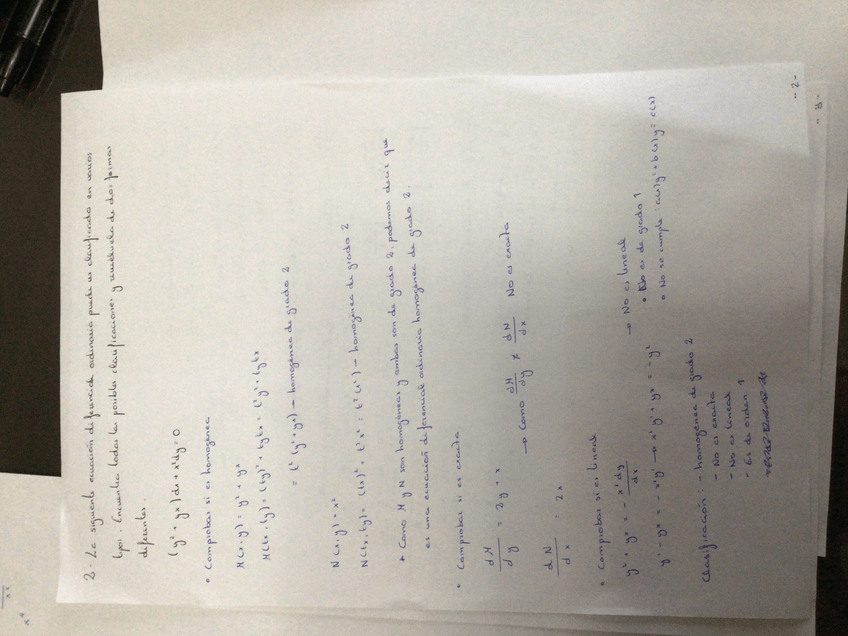 2. La siguiente ecuación diferencial ordinaria puede ser clasificada en varios
tipos. Encuentra todas las posibles clasificaciones y resuélvela de dos formas
diferentes.
(y² + yx) dx + x² dy = 0
• Comprobar si es homogénea
M(x,y) = y² + yx
M(tx,ty) = (ty)² + tytx = t²y² + tytx
= t² (y² + yx) → homogénea de grado 2
N(x,y) = x²
N(tx,ty) = (tx)² = t²x² = t² (x²) → homogénea de grado 2
* Como M y N son homogéneas y ambas son de grado 2, podemos decir que
es una ecuación diferencial ordinaria homogénea de grado 2.
• Comprobar si es exacta
dM/dy = 2y + x
→ Como dM/dy ≠ dN/dx No es exacta
dN/dx = 2x
• Comprobar si es lineal
y² + yx = - x² dy/dx → No es lineal
• No es de grado 1
y² + yx = - x²y' → x²y' + yx = - y²
• No se cumple a(x)y' + b(x)y = c(x)
Clasificación: - homogénea de grado 2
- No es exacta
- No es lineal
- Es de orden 1
- 2 -
- 3 -